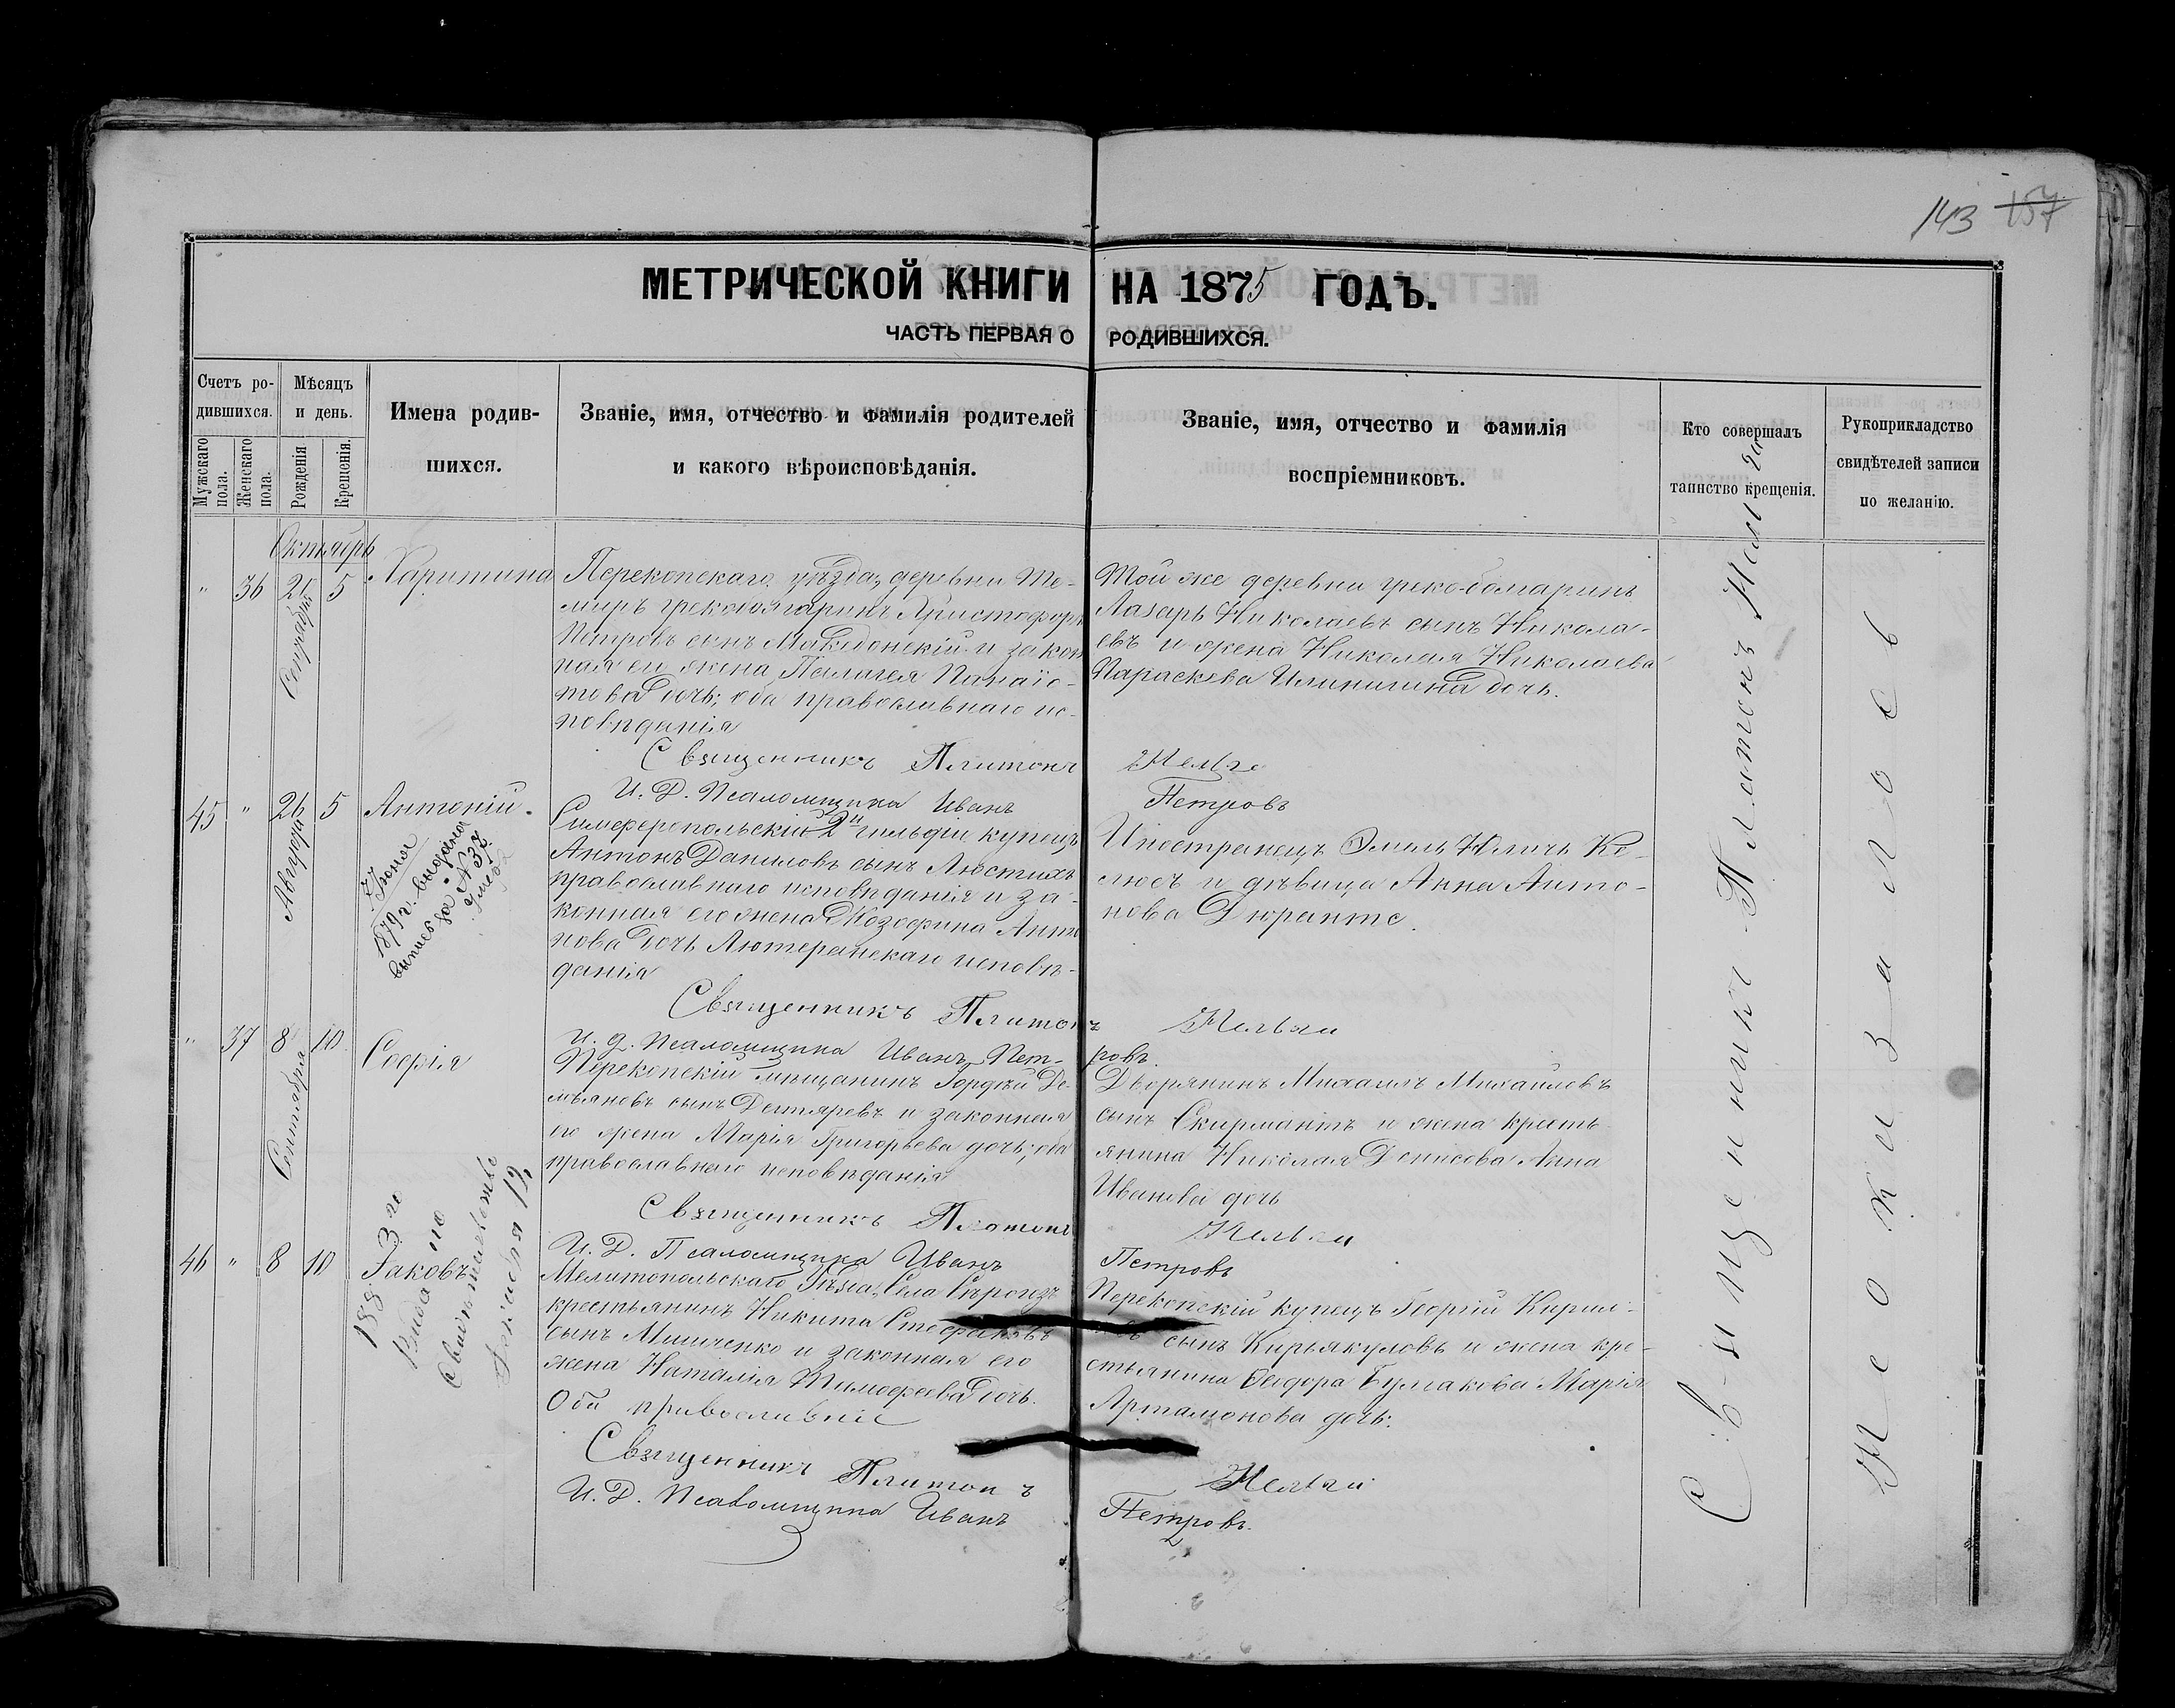 143 157
МЕТРИЧЕСКОЙ КНИГИ НА 1875 ГОДЪ.
ЧАСТЬ ПЕРВАЯ О РОДИВШИХСЯ.
Счетъ ро-
дившихся.
Мужскаго пола.
Женскаго пола.
Мѣсяцъ
и день.
Рожденія
Крещенія.
Имена родив-
шихся.
Званіе, имя, отчество и фамилія родителей
и какого вѣроисповѣданія.
Званіе, имя, отчество и фамилія
воспріемниковъ.
Кто совершалъ
таинство крещенія.
Рукоприкладство
свидѣтелей записи
по желанію.
Октябрь
" 36 5
Сентября
Харитина
Перекопскаго уѣзда, деревни Те-
миръ грекоболгаринъ Христофоръ
Петровъ сынъ Македонскій и закон
ная его жена Пелагея Панаіо-
това дочь; оба православнаго ис-
повѣданія
Той же деревни греко-болгаринъ
Лазарь Николаевъ сынъ Никола-
евъ и жена Николая Николаева
Параскева дочь.
Священникъ Платонъ
И. Д. Псаломщика Иванъ Петровъ
45 " 26 5
Августа
Антоній.
7 Іюня
1879 г. выдана
выпись за № 37.
Симферопольскій 2й гильдіи купецъ
Антонъ Даниловъ сынъ Люстихъ
православнаго исповѣданія и за-
конная его жена Жозефина Анто
нова дочь Лютеранскаго исповѣ-
данія
Иностранецъ Эмиль Ке-
люсъ и дѣвица Анна Анто-
нова Дюранте.
Священникъ Платонъ
И. д. Псаломщика Иванъ Пет-
ровъ.
" 37 8 10
Сентября
Софія
Перекопскій мѣщанинъ Гордѣй Де-
мьяновъ сынъ Дегтяревъ и законная
его жена Марія Григорьева дочь; оба
православнаго исповѣданія
Дворянинъ Михаилъ Михайловъ
сынъ Скирмантъ и жена кресть-
янина Николая Денисова Анна
Иванова дочь
Священникъ Платонъ
И. Д. Псаломщика Иванъ Петровъ
46 " 8 10
Іаковъ
1883 го
Выдано
Свидѣтельство
12
Мелитопольскаго Уѣзда, Села Сѣрогозъ
крестьянинъ Никита Стефановъ
сынъ Мищенко и законная его
жена Наталія Тимофеева дочь.
Оба православніе
Перекопскій купецъ Георгій Кирил-
сынъ Кирьякуловъ и жена кре-
стьянина Ѳедора Булгакова Марія
Артамонова дочь.
Священникъ Платонъ
И. Д. Псаломщика Иванъ Петровъ.
Священникъ Платонъ